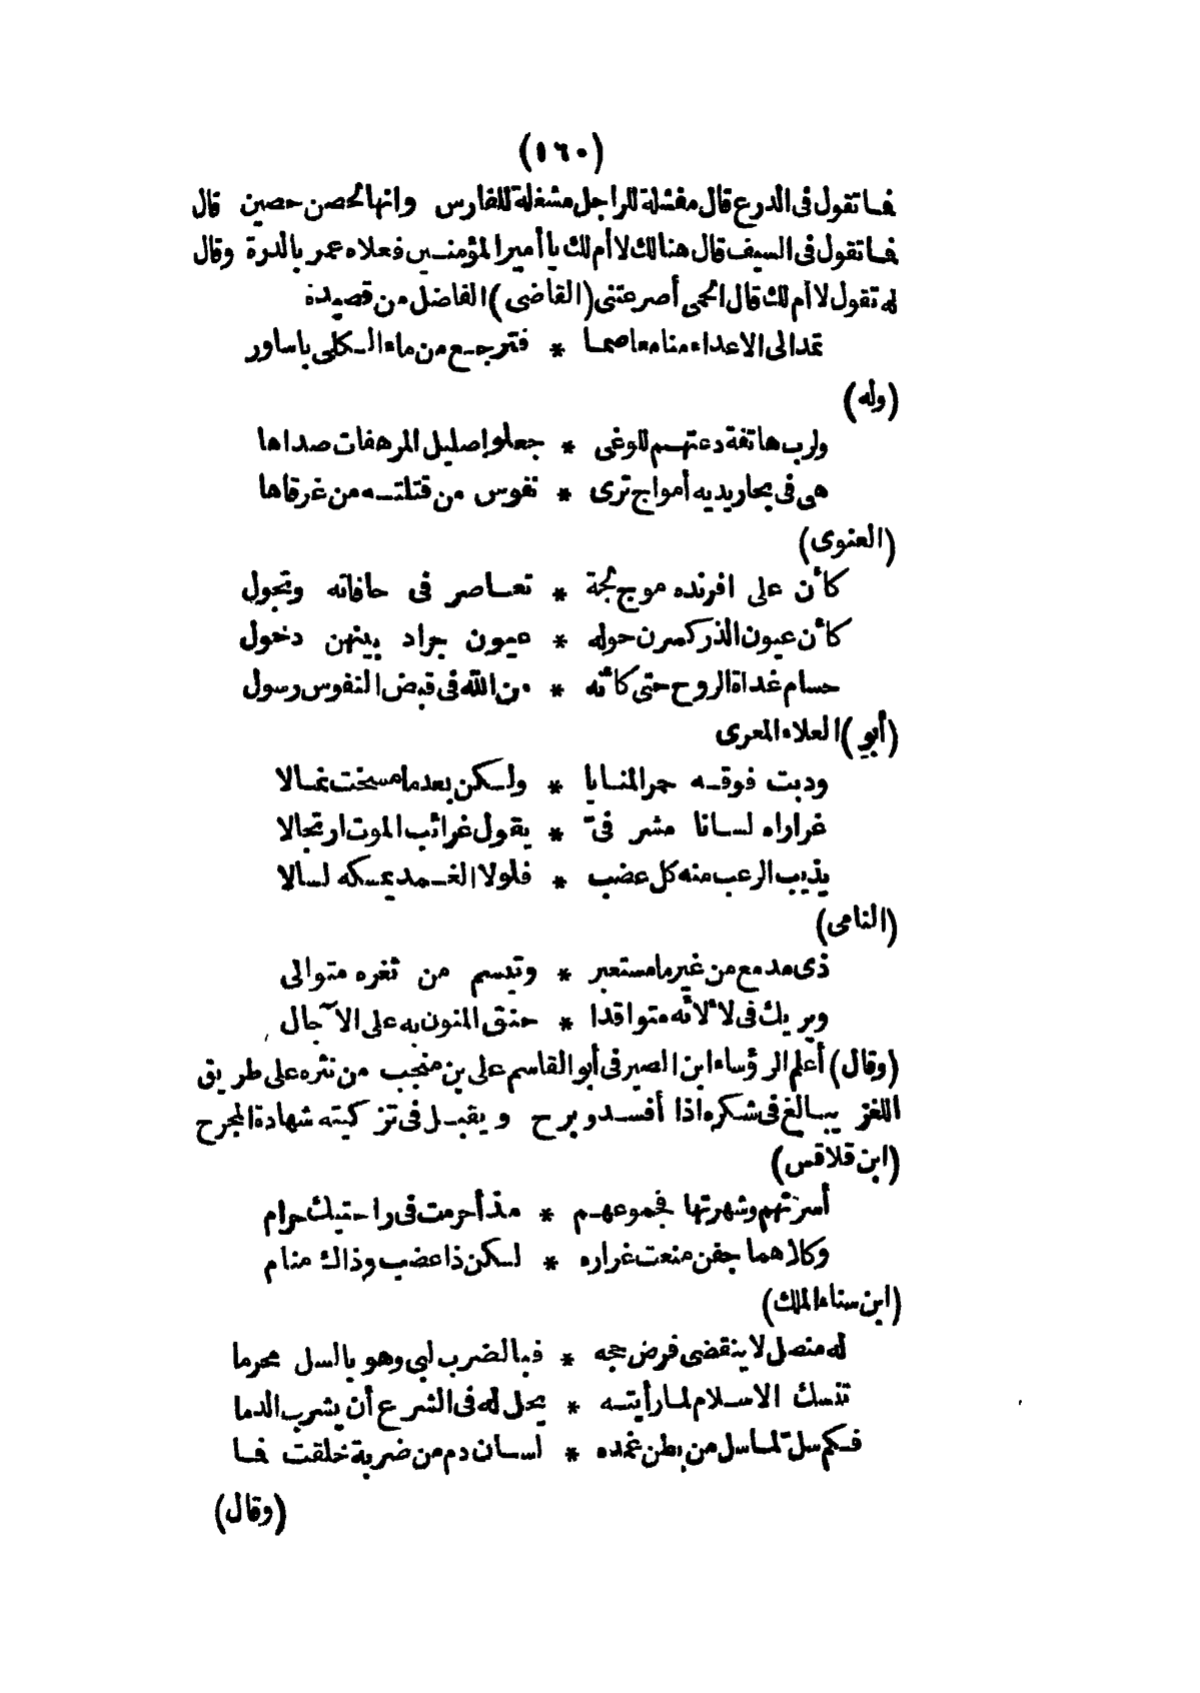 (١٦٠)
فما تقول فى الدرع قال مفشلة للراجل مشغلة للفارس وانها لحصن حصين قال
فما تقول فى السيف قال هنالك لا أم لك يا أمير المؤمنين فعلاه عمر بالدرة وقال
له تقول لا أم لك قال الحمى أصرعتنى (القاضى) الفاضل من قصيدة
تمد الى الاعداء منا معاصما * فترجع من ماء الكلى باساور
(وله)
ولرب هاتفة دعتهم للوغى * جعلوا صليل المرهفات صداها
هى فى بحار يديه أمواج ترى * نفوس من قتلته من غرقاها
(العنوى)
كأن على افرنده موج لجة * تعاصر فى حافاته وتجول
كأن عيون الذر كسرن حوله * عيون جراد بينهن دخول
حسام غداة الروح حتى كأنه * من الله فى قبض النفوس رسول
(أبو) العلاء المعرى
ودبت فوقه حمر المنايا * ولكن بعدما مسخت نمالا
غراراه لسانا مشرفىّ * يقول غرائب الموت ارتجالا
يذيب الرعب منه كل عضب * فلولا الغمد يمسكه لسالا
(النامى)
ذى مدمع من غير ما مستعبر * وتبسم من ثغره متوالى
ويريك فى لألائه متواقدا * حنق المنون به على الآجال
(وقال) أعلم الرؤساء ابن الصيرفى أبو القاسم على بن منجب من نثره على طريق
اللغز يبالغ فى شكره اذا أفسد وبرح ويقبل فى تزكيته شهادة المجرح
(ابن قلاقس)
أسرتهم وشهرتها فجموعهم * مذ أحرمت فى راحتيك حرام
وكلاهما جفن منعت غراره * لكن ذا عضب وذاك منام
(ابن سناء الملك)
له منصل لا ينقضى فرض حجه * فبالضرب لبى وهو بالسل محرما
تنسك الاسلام لما رأيته * يحل له فى الشرع أن يشرب الدما
فكم سل لما سل من بطن غمده * لسان دم من ضربة خلقت فما
(وقال)